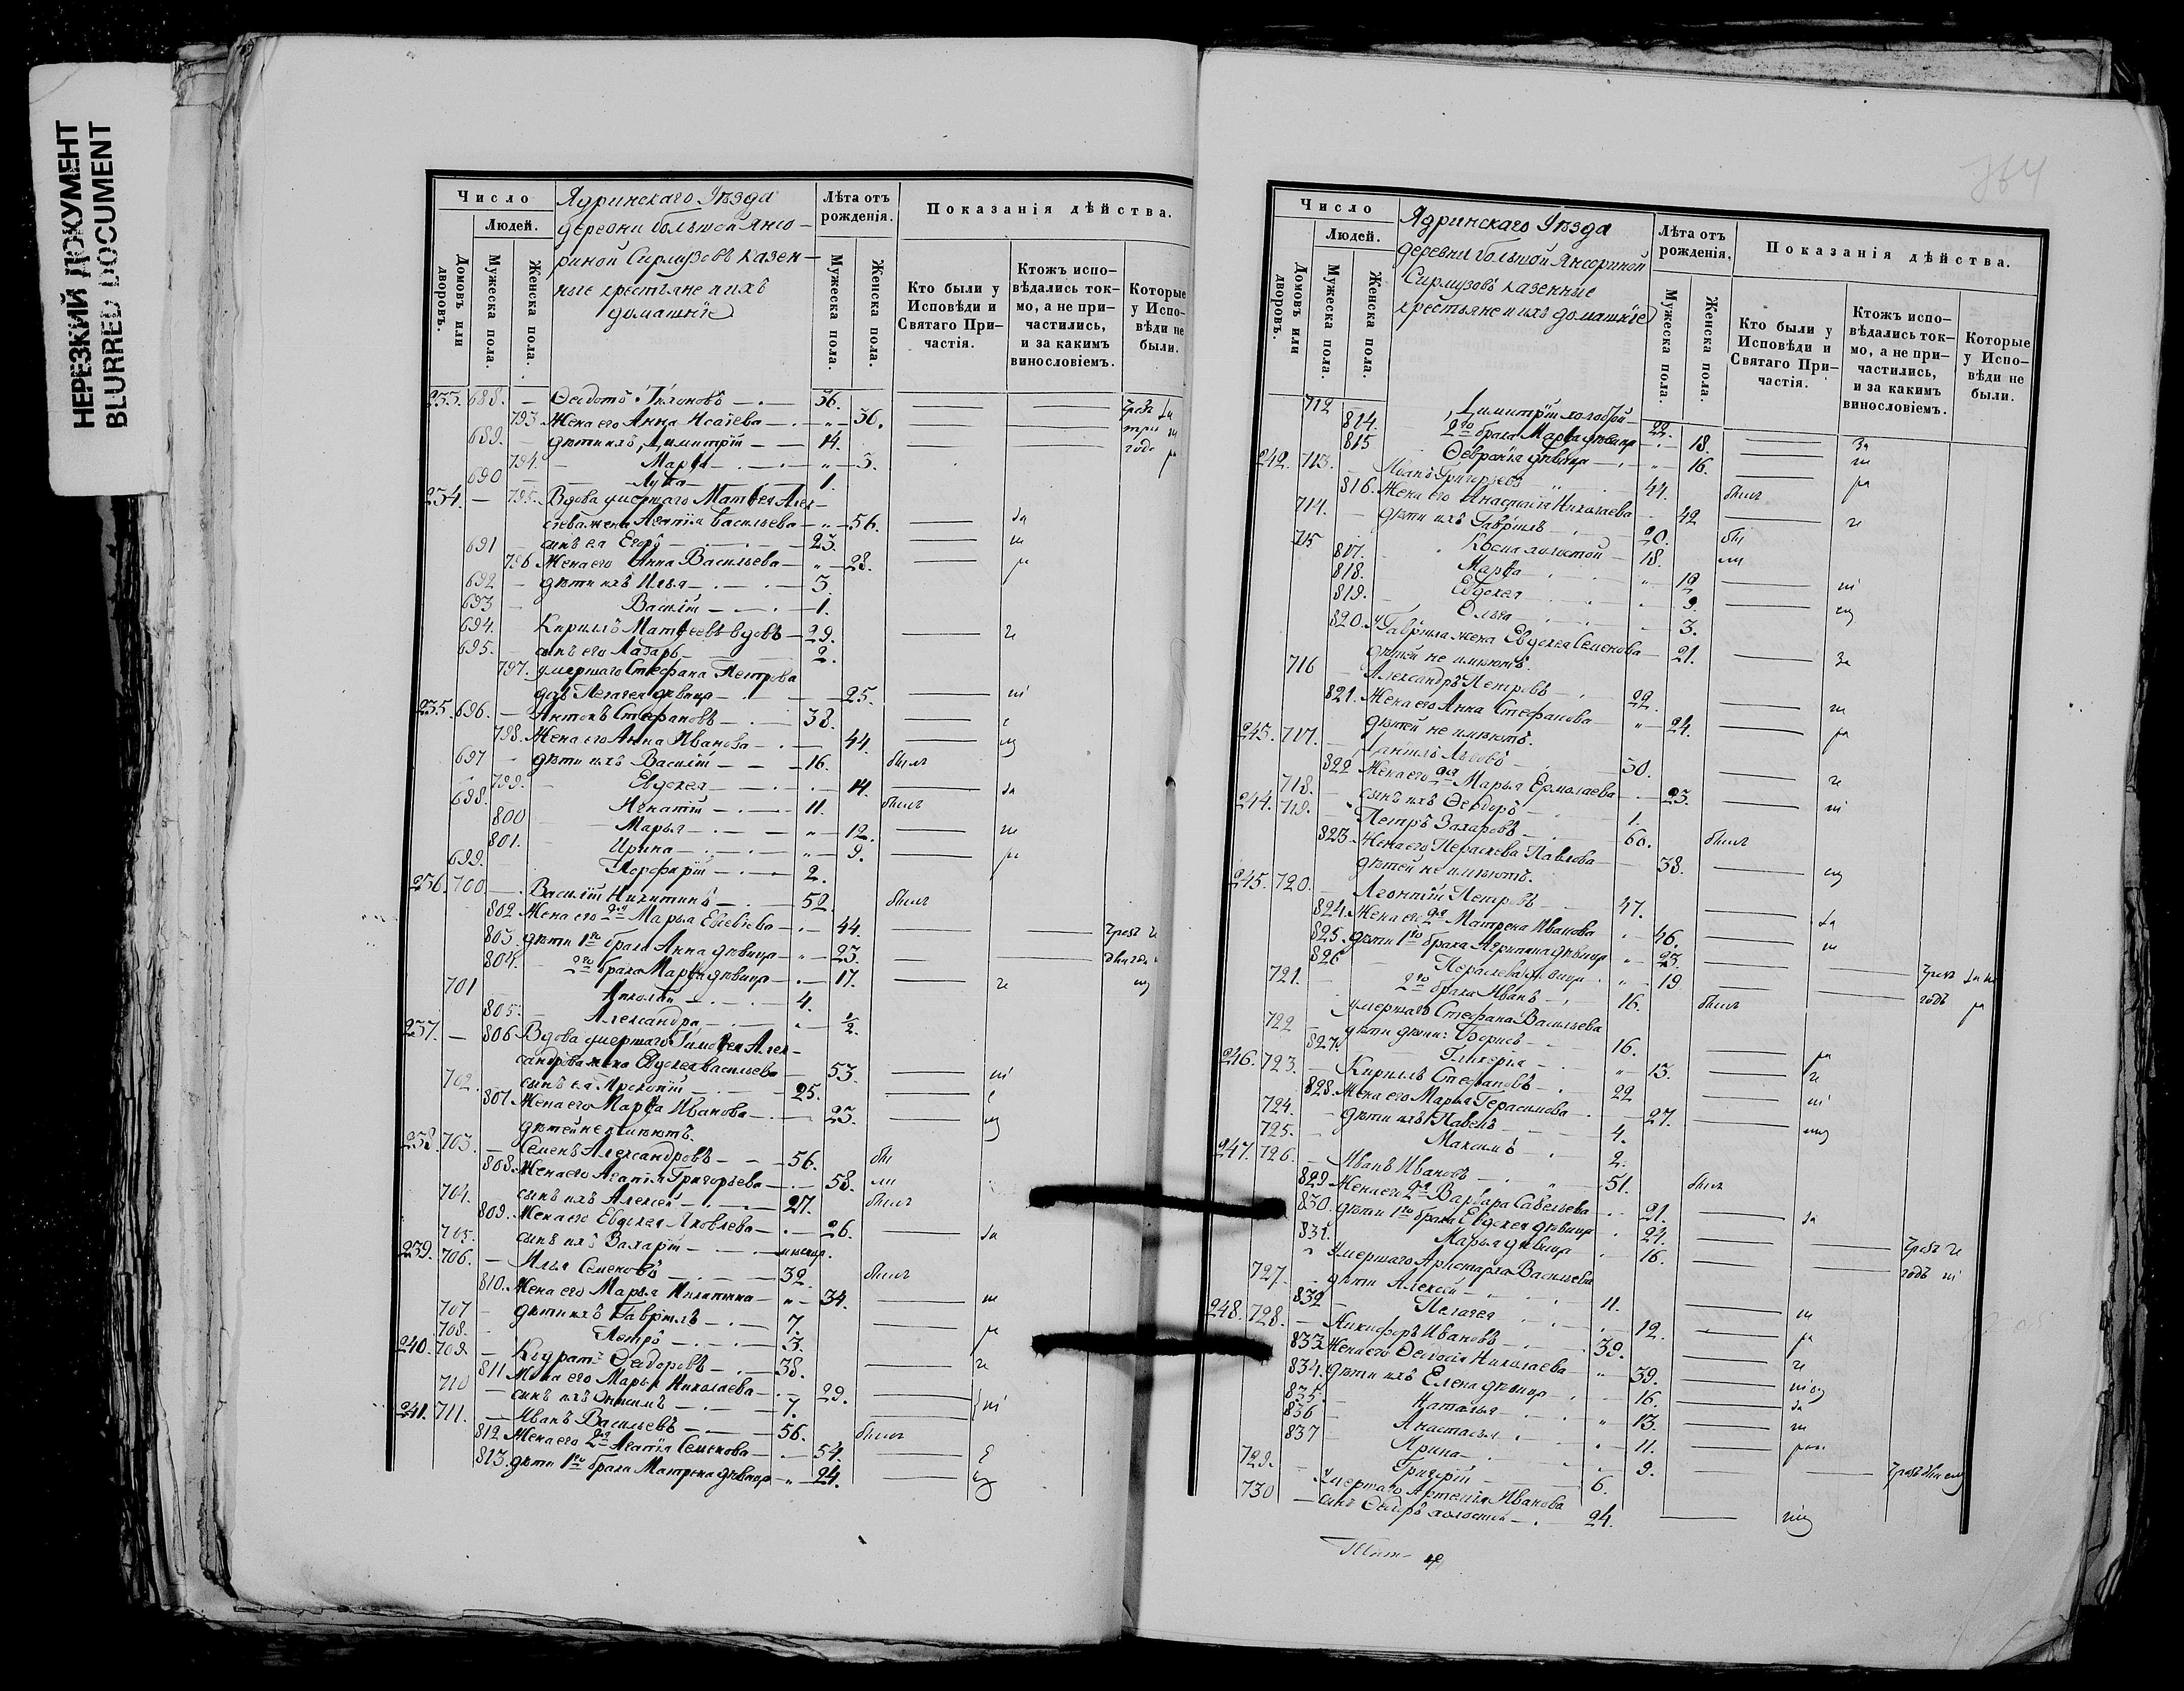 НЕРЕЗКИЙ ДОКУМЕНТ
BLURRED DOCUMENT
Число
Людей.
Домовъ или дворовъ.
Мужеска пола.
Женска пола.
Ядринскаго Уѣзда
деревни большой Янсо-
риной Сирмузовъ казен-
ные крестьяне и ихъ
домашніе
Лѣта отъ рожденія.
Мужеска пола.
Женска пола.
Показанія дѣйства.
Кто были у Исповѣди и Святаго Причастія.
Ктожъ исповѣдались токмо, а не причастились, и за какимъ винословіемъ.
Которые у Исповѣди не были.
233. 688. Ѳедотъ 36.
793 Жена его Анна Исаіева 36.
689. дѣти ихъ, Димитрій 14.
794. Марѳа 3.
690 Лука 1.
234. 795. Вдова умершаго Матвея Алек-
сіева жена Агапія Васильева 56.
691 сынъ ея Егоръ 23.
796 Жена его Анна Васильева 28.
692 дѣти ихъ Илья 3.
693 Василій 1.
694. Кириллъ Матѳеевъ вдовъ 29.
695. сынъ его Лазарь 2.
797. умершаго Стефана Петрова
дочь Пелагея дѣвица 25.
235. 696. Антонъ Стефановъ 38.
798. Жена его Анна Иванова 44.
697 дѣти ихъ Василій 16. былъ
799. Евдокея 14.
698. Игнатій 11. былъ
800 Марья 12.
801. Ирина 9.
699. Порфирій 2.
236. 700 Василій Никитинъ 52. былъ
802 Жена его 2я Марья Евсевіева 44.
803. дѣти 1го брака Анна дѣвица 23.
804. 2го брака Марѳа дѣвица 17.
701 Николай 4.
805. Александра 1/2
237. 806 Вдова умершаго Тимоѳея Алек-
сандрова жена Евдокея Васильева 53.
702. сынъ ея Прокопій 25.
807 Жена его Марѳа Иванова 23.
дѣтей не имѣютъ.
238. 703. Семенъ Александровъ 56.
808. Жена его Агапія Григорьева 58.
704. сынъ ихъ Алексей 27. былъ
809. Жена его Евдокея Яковлева 26.
705. сынъ ихъ Захарій
239. 706. Илья Семеновъ 32. былъ
810. Жена его Марья Никитина 34.
707 дѣти ихъ Гавріилъ 7.
708. Петръ 3.
240. 709. Кодратъ Ѳедоровъ 38.
811 Жена его Марья Николаева 29.
710 сынъ ихъ Онисимъ 7.
241. 711. Иванъ Васильевъ 56. былъ
812 Жена его 2я Агапія Семенова 54.
813. дѣти 1го брака Матрена дѣвица 24.
Число
Людей.
Домовъ или дворовъ.
Мужеска пола.
Женска пола.
Ядринскаго Уѣзда
деревни большой Янсориной
Сирмузовъ казенные
крестьяне и ихъ домашніе
Лѣта отъ рожденія.
Мужеска пола.
Женска пола.
Показанія дѣйства.
Кто были у Исповѣди и Святаго Причастія.
Ктожъ исповѣдались токмо, а не причастились, и за какимъ винословіемъ.
Которые у Исповѣди не были.
712 Димитрій холостой 22.
814. 2го брака Марѳа дѣвица 18.
815 Ѳевранія дѣвица 16.
242. 713. Иванъ Григорьевъ 44. былъ
816. Жена его Анастасія Николаева 42
714. дѣти ихъ Гавріилъ 20.
715 Козма холостой 18.
817. Марѳа 12
818. Евдокея 9.
819. Ольга 3.
820. Гавріила жена Евдокея Семенова 21.
дѣтей не имѣютъ.
716 Александръ Петровъ 22.
821. Жена его Анна Стефанова 24.
дѣтей не имѣютъ.
243. 717. Даніилъ Львовъ 30.
822 Жена его 2я Марья Ермолаева 23.
718. сынъ ихъ Ѳеодоръ 1.
244. 719. Петръ Захаровъ 60. былъ
823. Жена его Параскева Павлова 38.
дѣтей не имѣютъ.
245. 720. Леонтій Петровъ 47.
824. Жена его 2я Матрена Иванова 46.
825. дѣти 1го брака Агрипина дѣвица 23.
826 Параскева дѣвица 19
721. 2го брака Иванъ 16. былъ
умершаго Стефана Васильева
722 дѣти: Борисъ 16.
827. Гликерія 13.
246. 723. Кириллъ Стефановъ 22
828. Жена его Марья Герасимова 27.
724. дѣти ихъ Павелъ 4.
725. Максимъ 2.
247. 726. Иванъ Ивановъ 51. былъ
829 Жена его 2я Варвара Савельева 21.
830. дѣти 1го брака Евдокея дѣвица 24.
831. Марья дѣвица 16.
Умершаго Аристарха Васильева
727. дѣти Алексей 11.
832 Пелагея 12.
248. 728. Никифоръ Ивановъ 39.
833. Жена его Ѳедосія Николаева 39.
834. дѣти ихъ Елена дѣвица 16.
835. Наталья 13.
836 Анастасья 11.
837 Ирина 9.
729. Григорій 6.
Умершаго Артемія Иванова
730 сынъ Ѳедоръ холостой 24.